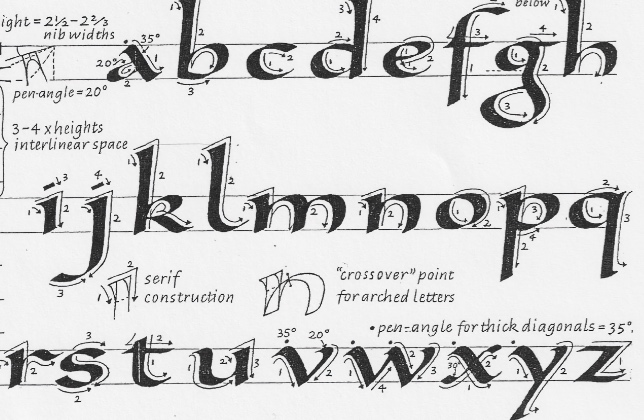 ight = 2½-2⅔
nib widths
below
35°
20°
a b c d e f g h
pen-angle = 20°
3-4 x heights
interlinear space
i j k l m n o p q
serif
construction
"crossover" point
for arched letters
• pen-angle for thick diagonals = 35°.
35° 20°
r s t u v w x y z